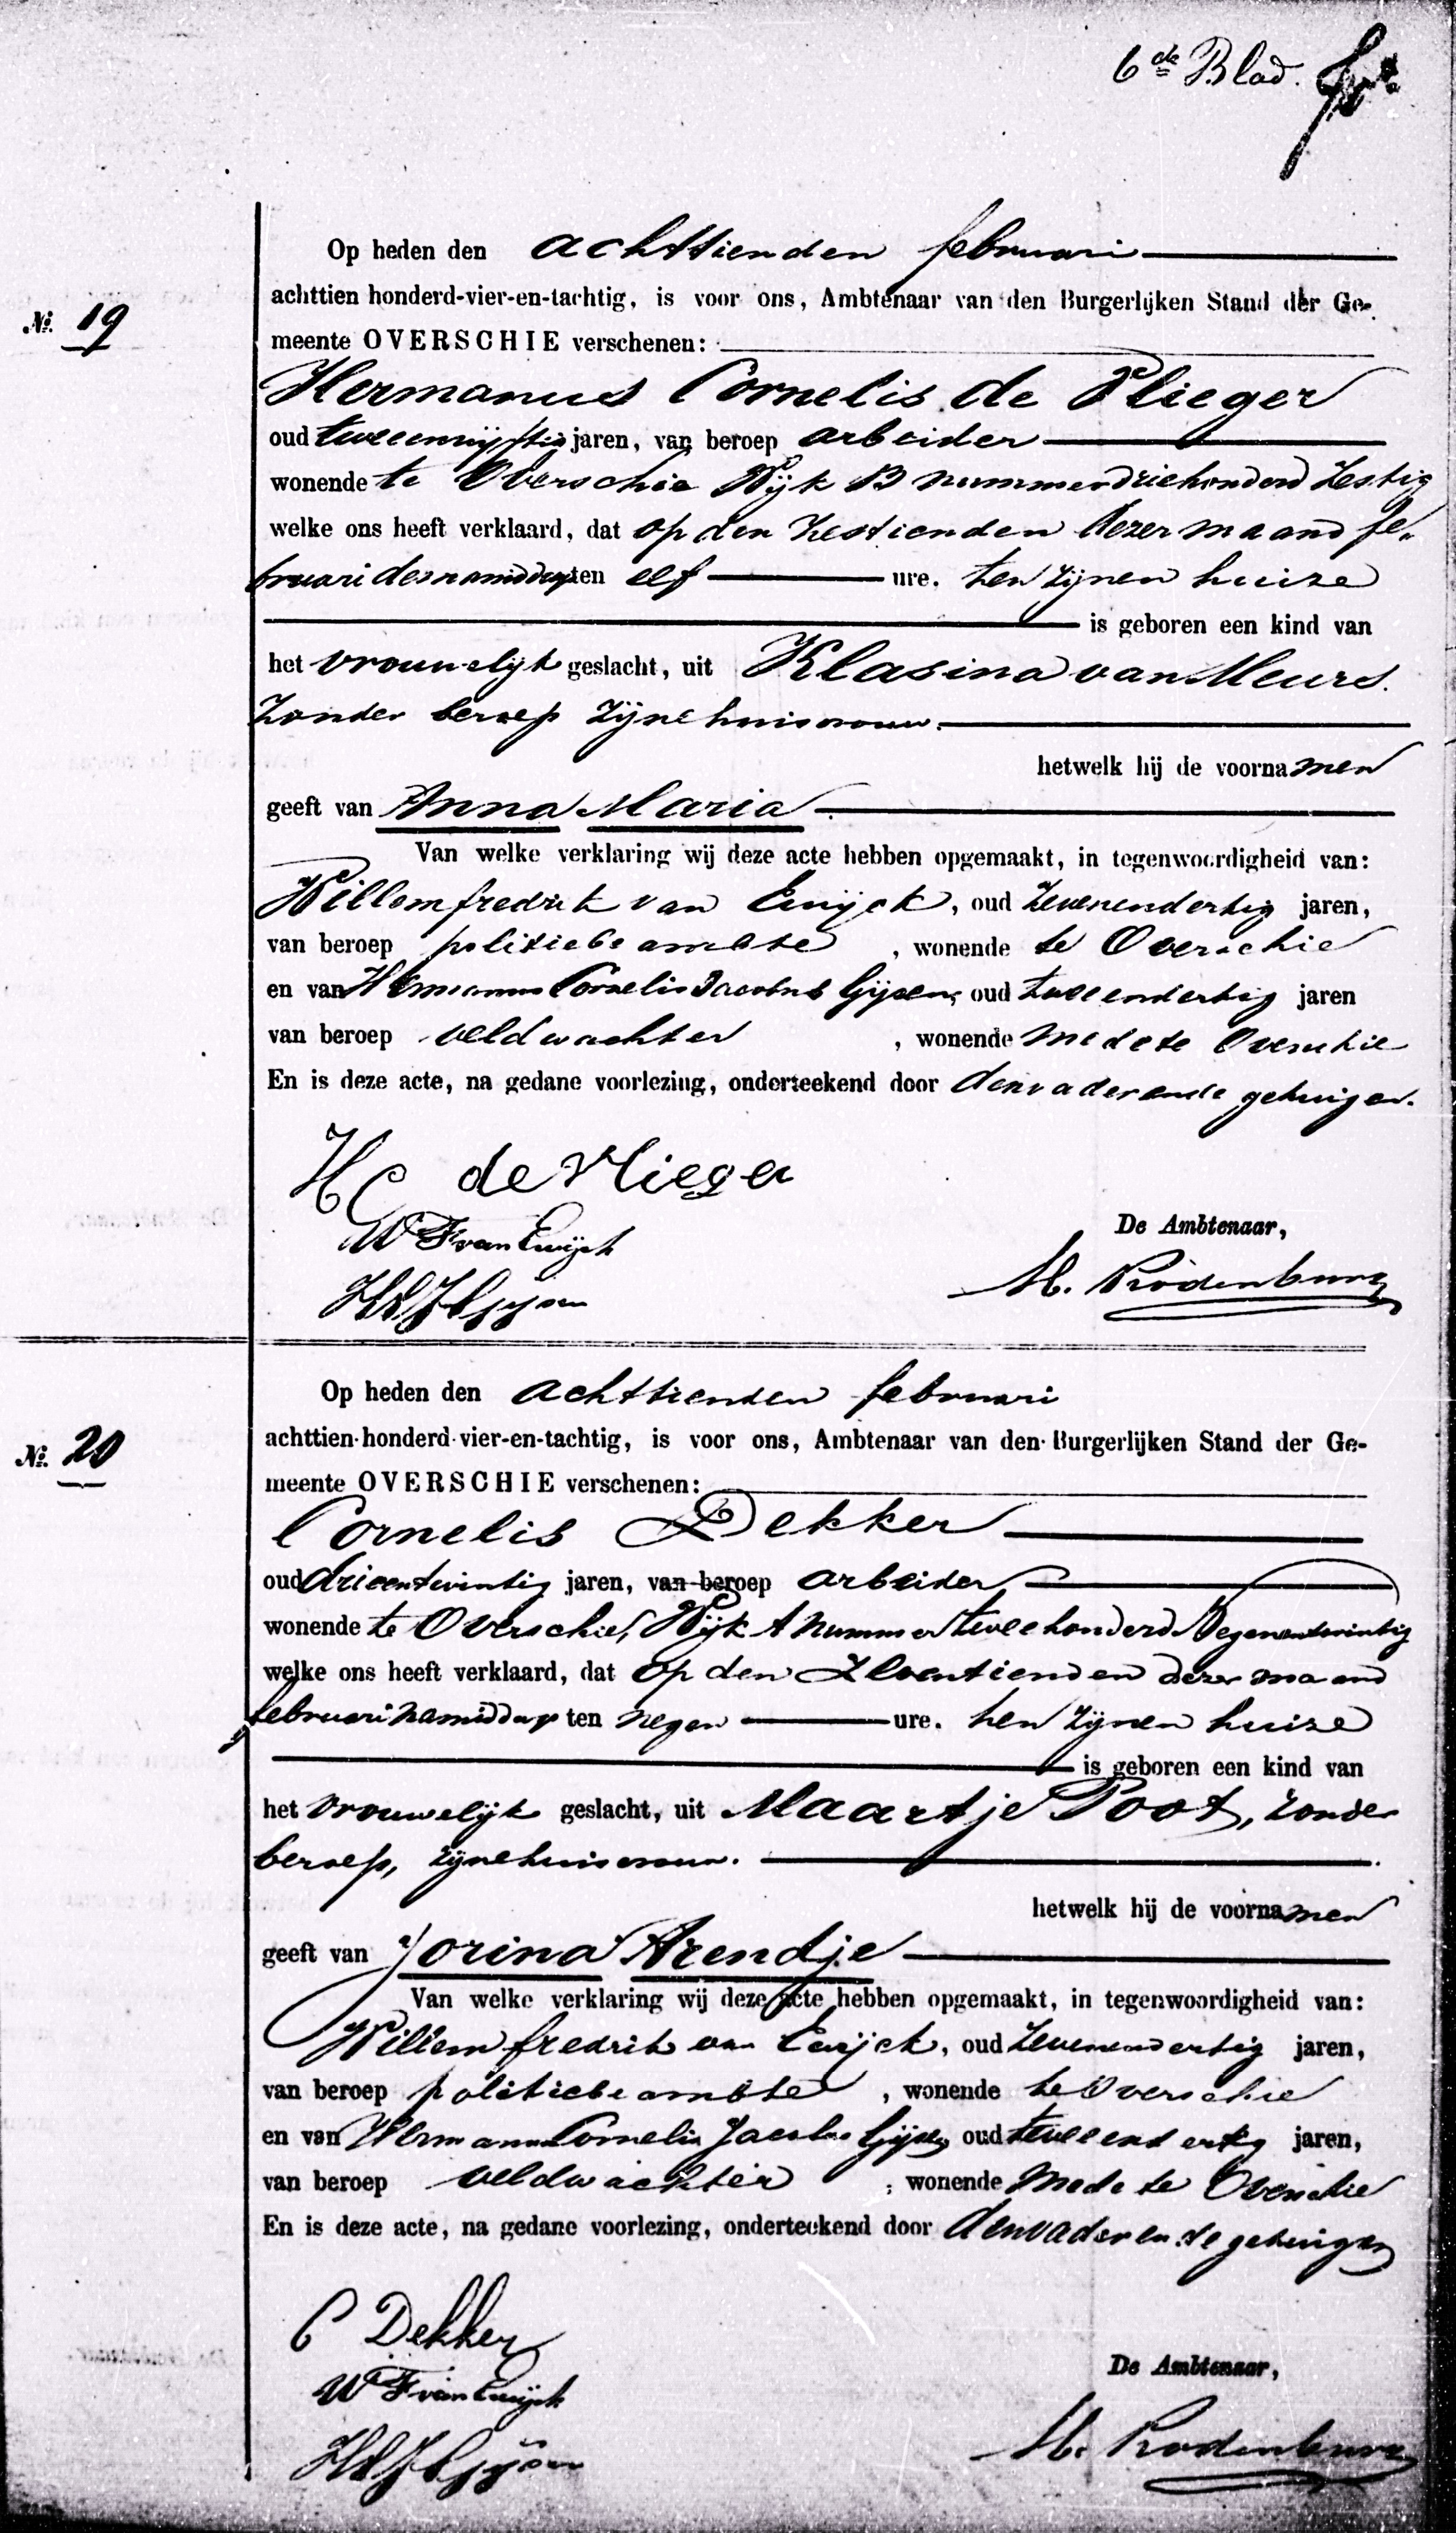 6de Blad.
Op heden den achttienden februari
achttien honderd-vier-en-tachtig, is voor ons, Ambtenaar van den Burgerlijken Stand der Ge-
No. 19
meente OVERSCHIE verschenen:
Hermanus Cornelis de Vlieger
oud tweeenvijftig jaren, van beroep arbeider
wonende te Overschie Wijk B nummer driehonderd Zestig
welke ons heeft verklaard, dat op den Zestienden dezer maand fe-
bruari des namiddags ten elf ure. ten Zijnen huize
is geboren een kind van
het vrouwelijk geslacht, uit Klasina van Meurs.
Zonder beroep Zijne huisvrouw.
hetwelk hij de voornamen
geeft van Anna Maria.
Van welke verklaring wij deze acte hebben opgemaakt, in tegenwoordigheid van:
Willem fredrik van Ewijck, oud Zevenendertig jaren,
van beroep politiebeambte, wonende te Overschie
en van Hermanus Cornelis Jacobus Gijzen, oud tweeendertig jaren
van beroep veldwachter, wonende mede te Overschie
En is deze acte, na gedane voorlezing, onderteekend door den vader en de getuigen.
HC de Vlieger
W F van Ewijck
De Ambtenaar,
HCJ Gijzen
M. Rodenburg
Op heden den achttienden februari
achttien-honderd-vier-en-tachtig, is voor ons, Ambtenaar van den Burgerlijken Stand der Ge-
No. 20
meente OVERSCHIE verschenen:
Cornelis Dekker
oud drieentwintig jaren, van beroep arbeider
wonende te Overschie, Wijk A nummer tweehonderd Negenentwintig
welke ons heeft verklaard, dat op den Zeventienden dezer maand
februari namiddag ten negen ure. ten Zijnen huize
is geboren een kind van
het vrouwelijk geslacht, uit Maartje Poot, zonder
beroep, zijne huisvrouw.
hetwelk hij de voornamen
geeft van Jorina Arendje
Van welke verklaring wij deze acte hebben opgemaakt, in tegenwoordigheid van:
Willem fredrik van Ewijck, oud Zevenendertig jaren,
van beroep politiebeambte, wonende te Overschie
en van Hermanus Cornelis Jacobus Gijzen, oud tweeendertig jaren,
van beroep veldwachter, wonende mede te Overschie
En is deze acte, na gedane voorlezing, onderteekend door den vader en de getuigen
C Dekker
De Ambtenaar,
W F van Ewijck
HCJ Gijzen
M. Rodenburg